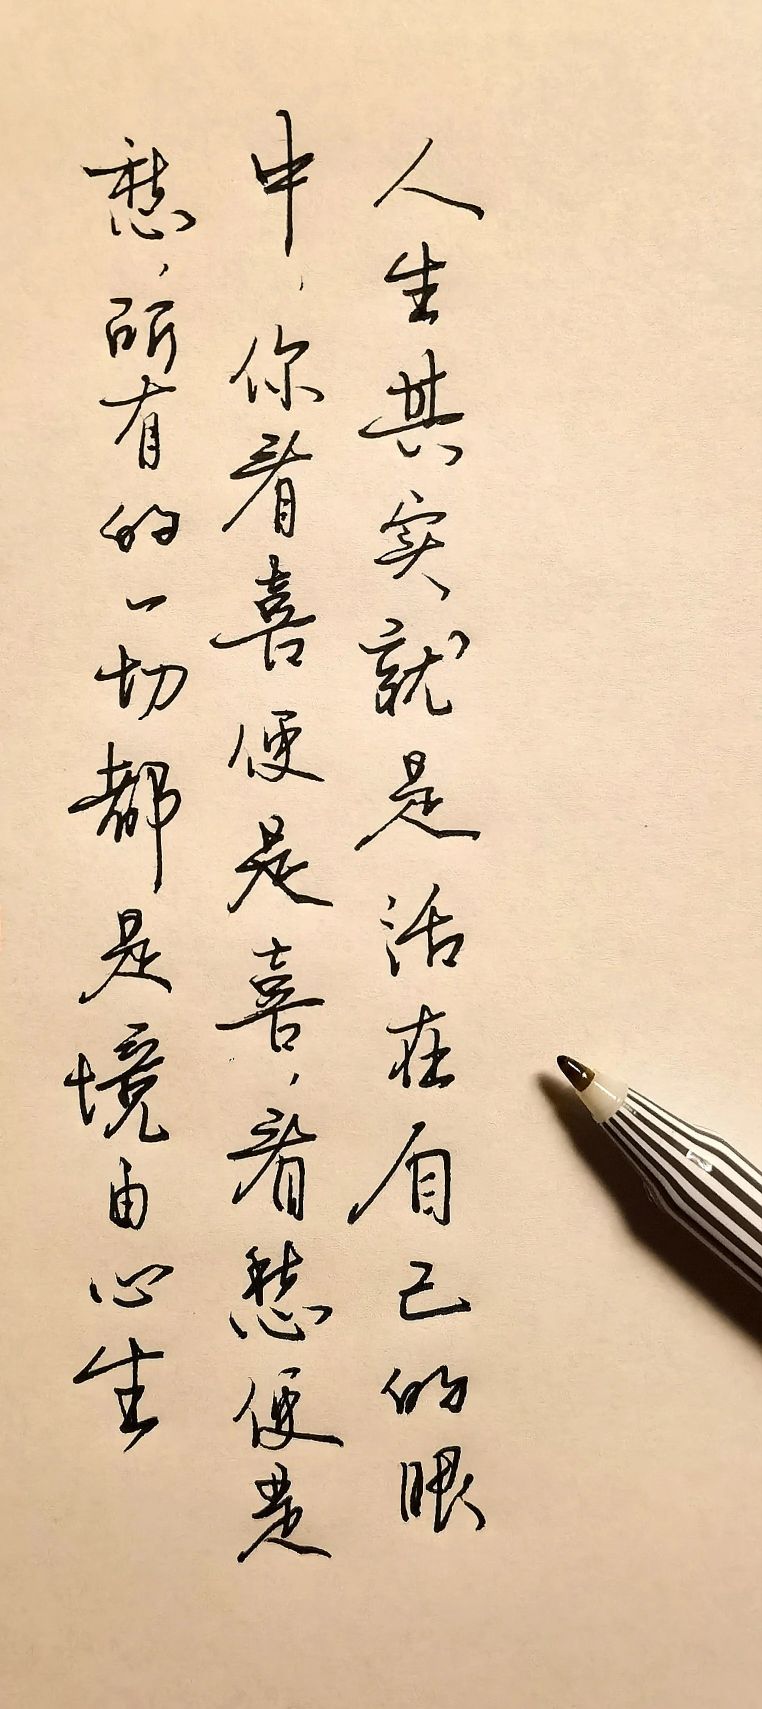 人生其实就是活在自己的眼
中,你看喜便是喜,看愁便是
愁,所有的一切都是境由心生